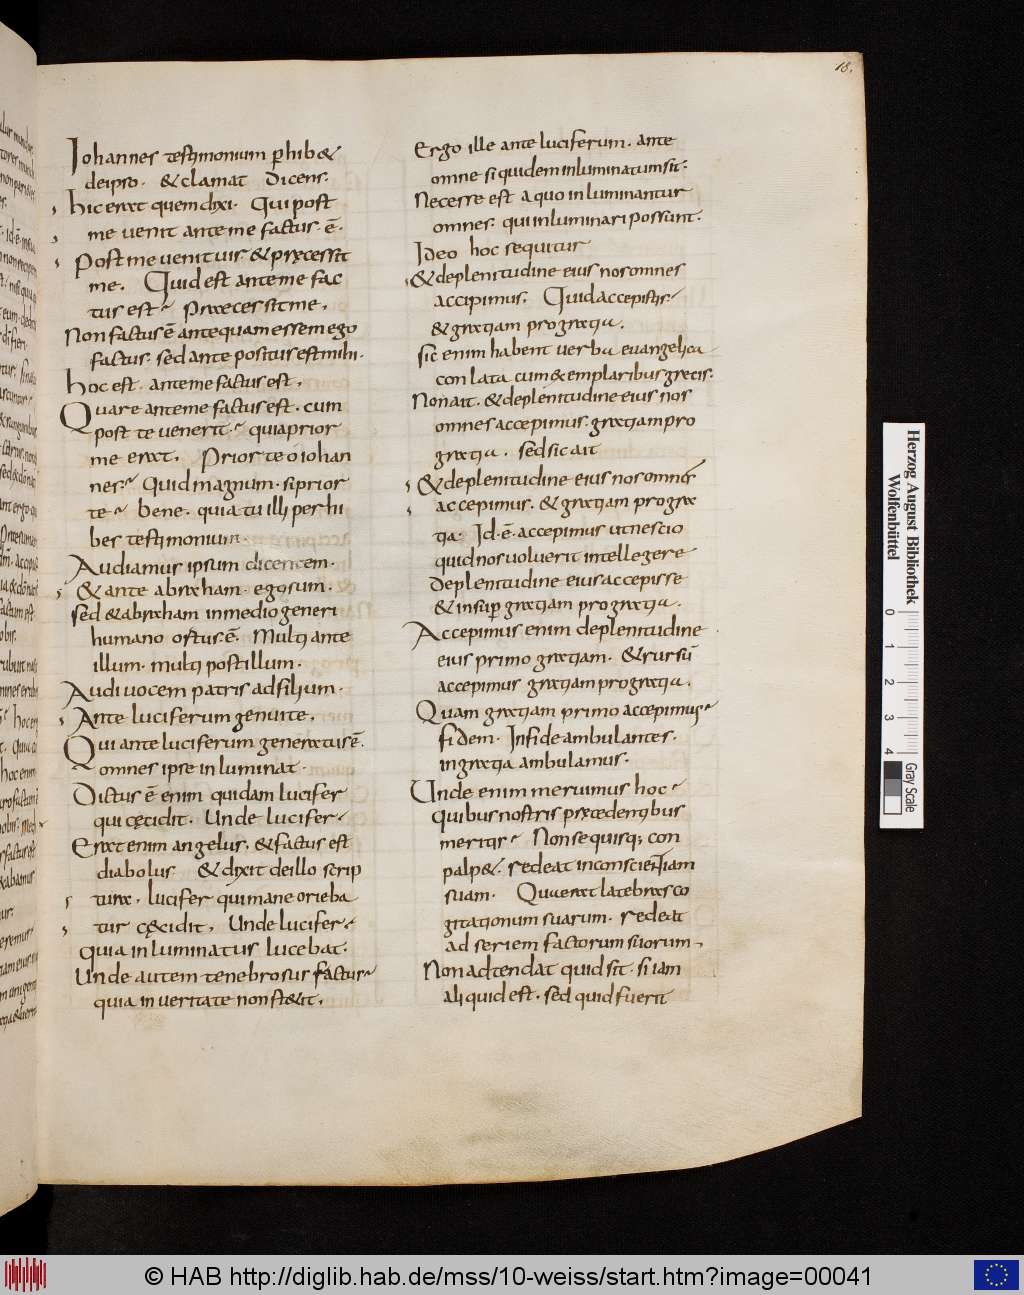 18.
Iohannes testimonium phib&
deipso. & clamat Dicens.
hic erat quem dixi. Qui post
me uenit ante me factus. ē.
Post me uenit uir & pręcessit
me. Quid est ante me fac
tus est Praecessit me,
Non factus ē antequam essem ego
factus. sed ante positus est mihi.
hoc est. ante me factus est,
Quare ante me factus est. cum
post te uenerit. quia prior
me erat, Prior te o iohan
nes Quid magnum. si prior
te bene. quia tu illi perhi
bes testimonium.
Audiamus ipsum dicentem.
& ante abraham. ego sum.
sed & abraham in medio generi
humano ortus. ē. Multi ante
illum. multi post illum.
Audi uocem patris ad filium.
Ante luciferum genui te,
Qui ante luciferum generatus ē.
omnes ipse inluminat.
Dictus ē enim quidam lucifer
qui cęcidit. Unde lucifer
Erat enim angelus, & factus est
diabolus & dixit de illo scrip
tura. lucifer qui mane orieba
tur cęcidit, Unde lucifer
quia inluminatus lucebat.
Unde autem tenebrosus factus
quia in ueritate non st&it,
Ergo ille ante luciferum. ante
omne siquidem inluminatum sit.
Necesse est a quo inluminantur
omnes. qui inluminari possunt.
Ideo hoc sequitur
& de plenitudine eius nos omnes
accipimus. Quid accepistis
& gratiam pro gratia.
sic enim habent uerba euangelica
conlata cum exemplaribus grecis.
Non ait. & de plenitudine eius nos
omnes accepimus. gratiam pro
gratia. sed sic ait
& de plenitudine eius nos omnes
accepimus. & gratiam pro gra
tia. Id. ē. accepimus ut nescio
quid nos uoluerit intellegere
de plenitudine eius accepisse
& insup gratiam pro gratia.
Accepimus enim de plenitudine
eius primo gratiam. & rursū
accepimus gratiam pro gratia.
Quam gratiam primo accepimus
fidem. In fide ambulantes.
in gratia ambulamus.
Unde enim meruimus hoc
quibus nostris pręcedentibus
meritis Non se quisq; con
palp&. redeat in conscientiam
suam. Quaerat latebras co
gitationum suarum. redeat
ad seriem factorum suorum,
Non adtendat quid sit. si iam
aliquid est. sed quid fuerit
Herzog August Bibliothek
Wolfenbüttel
0 1 2 3 4
Gray Scale
© HAB http://diglib.hab.de/mss/10-weiss/start.htm?image=00041